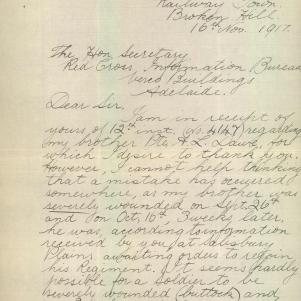 Railway Town.
Broken Hill.
16th Nov. 1917.
The Hon Secretary
Red Cross, Information Bureau
Buildings
Adelaide.
Dear Sir,
I am in receipt of
yours, of 12th inst. (No. 4147) regarding
my brother Pte. A.L. Laws, for
which I desire to thank you.
However, I cannot help thinking
that a mistake has occured
somewhere, as my brother was
severely wounded on Sept. 26th
and on Oct. 16th, 3 weeks later,
he was, according to information
received by you, at Salisbury
Plains, awaiting orders to rejoin
his Regiment. It seems hardly
possible for a soldier to be
severely wounded (buttock) and